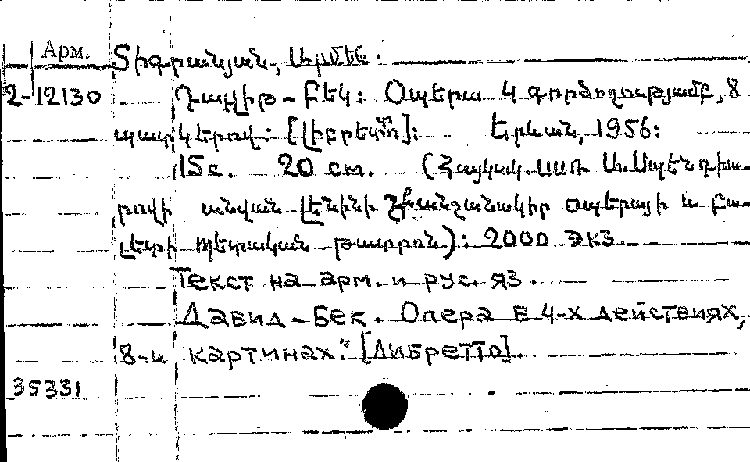 Арм.
Տիգրանյան, Արմեն:
2-12130 Դավիթ-Բեկ: Օպերա 4 գործողությամբ, 8
պատկերով: [Լիբրետտո]: Երևան, 1956:
15с. 20 см. (Հայկակ. ՍՍՌ Ա. Սպենդիա-
րովի անվան Լենինի շքանշանակիր օպերայի և բա-
լետի պետական թատրոն): 2000 экз.
Текст на арм. и рус. яз.
Давид-Бек. Опера в 4-х действиях,
8-и картинах: [Либретто].
35331